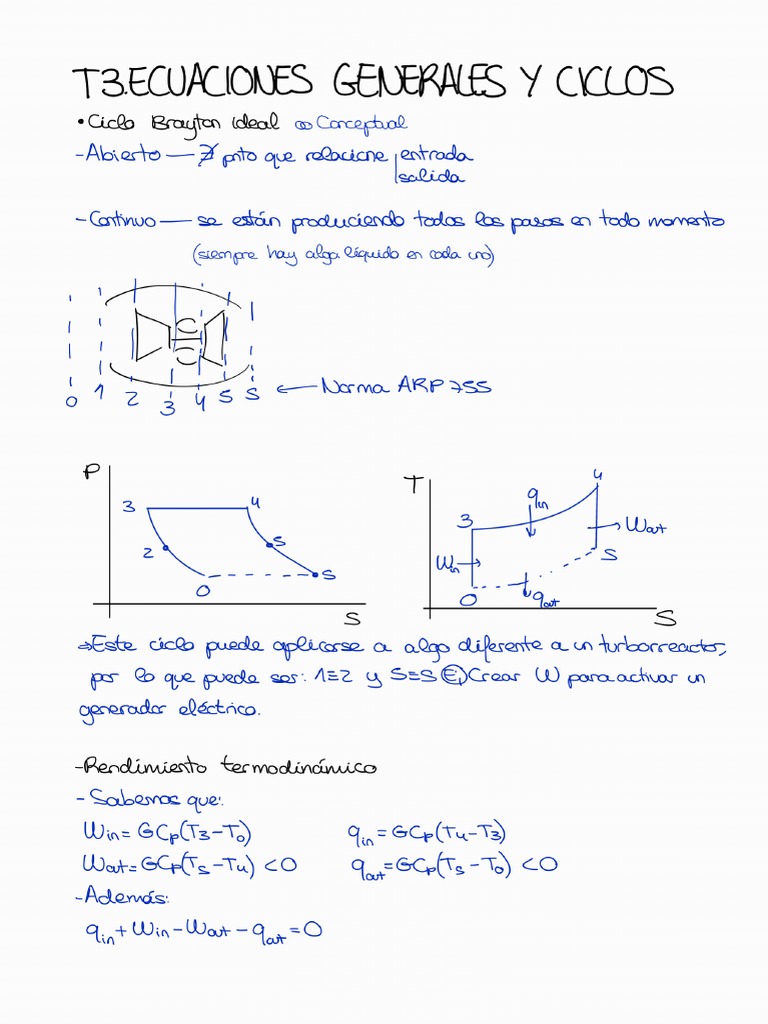 T3.ECUACIONES GENERALES Y CICLOS
• Ciclo Brayton ideal ∞ Conceptual
- Abierto — ∄ pnto que relacione | entrada
salida
- Continuo — se están produciendo todos los pasos en todo momento
(siempre hay algo líquido en cada uno)
0 1 2 3 4 5 S ← Norma ARP 755
P
3 4
2 5
0 S
S
T
4
q in
3
Wout
Win
S
0 q out
S
→ Este ciclo puede aplicarse a algo diferente a un turborreactor,
por lo que puede ser: 1≡2 y 5≡S Ej Crear W para activar un
generador eléctrico.
- Rendimiento termodinámico
- Sabemos que:
Win = GCp(T3-T0) qin = GCp(T4-T3)
Wout = GCp(Ts-T4) <0 qout = GCp(Ts-T0) <0
- Además:
qin + Win - Wout - qout = 0